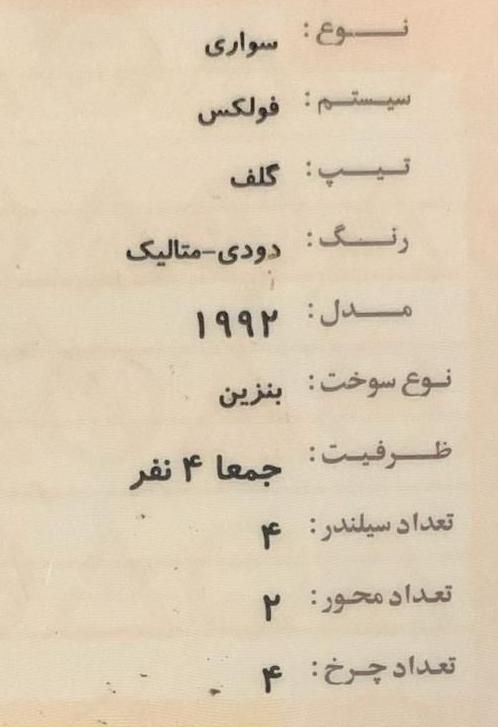 نوع: سواری
سیستم: فولکس
تیپ: گلف
رنگ: دودی-متالیک
مدل: ۱۹۹۲
نوع سوخت: بنزین
ظرفیت: جمعا ۴ نفر
تعداد سیلندر: ۴
تعداد محور: ۲
تعداد چرخ: ۴